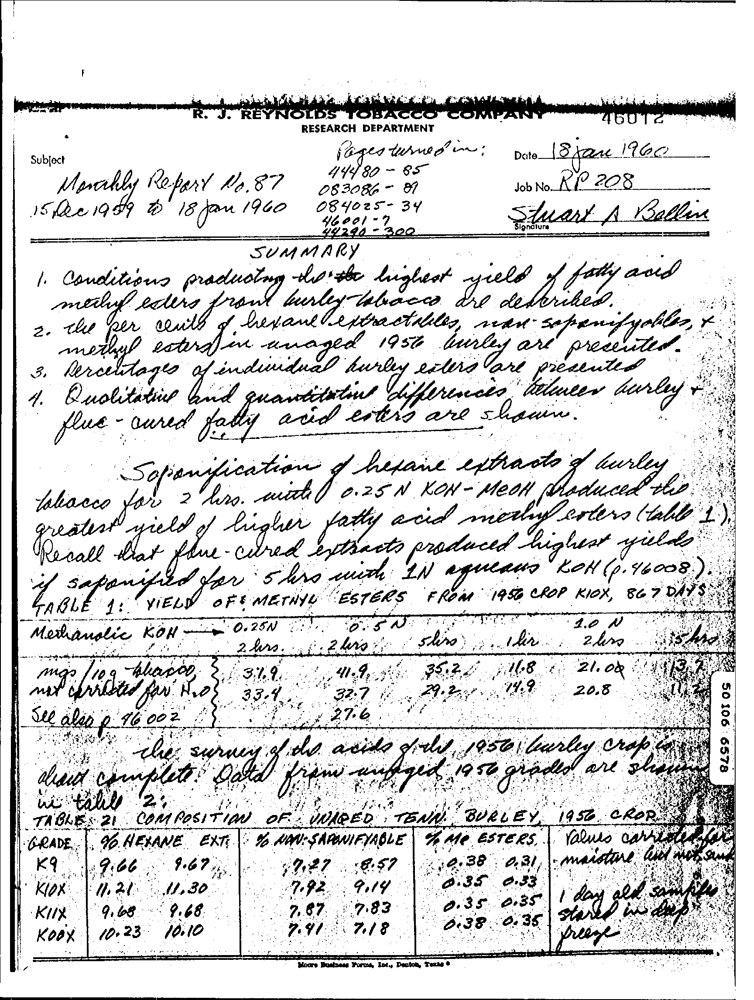 R. J. REYNOLDS TOBACCO COMPANY
RESEARCH DEPARTMENT
46012
Subject
Monthly Report No. 87
15 Dec 1959 to 18 Jan 1960
Pages turned in:
44480 - 85
083086 - 89
084025 - 34
46001 - 7
44290 - 300
Date 18 Jan 1960
Job No. RP 208
Stuart A Bellin
Signature
SUMMARY
1. Conditions producting the highest yield of fatty acid
methyl esters from burley tobacco are described.
2. The per cents of hexane extractables, non-saponifyables, +
methyl esters in unaged 1956 burley are presented.
3. Percentages of individual burley esters are presented
4. Qualitative and quantitative differences between burley +
flue-cured fatty acid esters are shown.
Saponification of hexane extracts of burley
tobacco for 2 hrs. with 0.25 N KOH-MeOH produced the
greatest yield of higher fatty acid methyl esters (table 1).
Recall that flue-cured extracts produced highest yields
if saponified for 5 hrs with 1N aqueous KOH (p. 46008).
TABLE 1: YIELD OF METHYL ESTERS FROM 1956 CROP K10X, 867 DAYS
Methanolic KOH → 0.25N 0.5N 1.0 N
2 hrs. 2 hrs. 5 hrs 1 hr 2 hrs 5 hrs
mgs/10g tobacco, 37.9 41.9 35.2 11.8 21.00 13.7
not corrected for H2O 33.4 32.7 29.2 14.9 20.8 11.2
See also p 46002 27.6
The survey of the acids of the 1956 burley crop is
about complete. Data from unaged 1956 grades are shown
in table 2:
TABLE 2: COMPOSITION OF UNAGED TENN. BURLEY, 1956 CROP
GRADE % HEXANE EXT. % NON-SAPONIFYABLE % Me ESTERS Values corrected for
K9 9.66 9.67 7.27 8.57 0.38 0.31 moisture but not sand
K10X 11.21 11.30 7.92 9.14 0.35 0.33 1 day old samples
K11X 9.68 9.68 7.87 7.83 0.35 0.35 stored in deep
K00X 10.23 10.10 7.41 7.18 0.38 0.35 freeze
Moore Business Forms, Inc., Denton, Texas
50106 6578